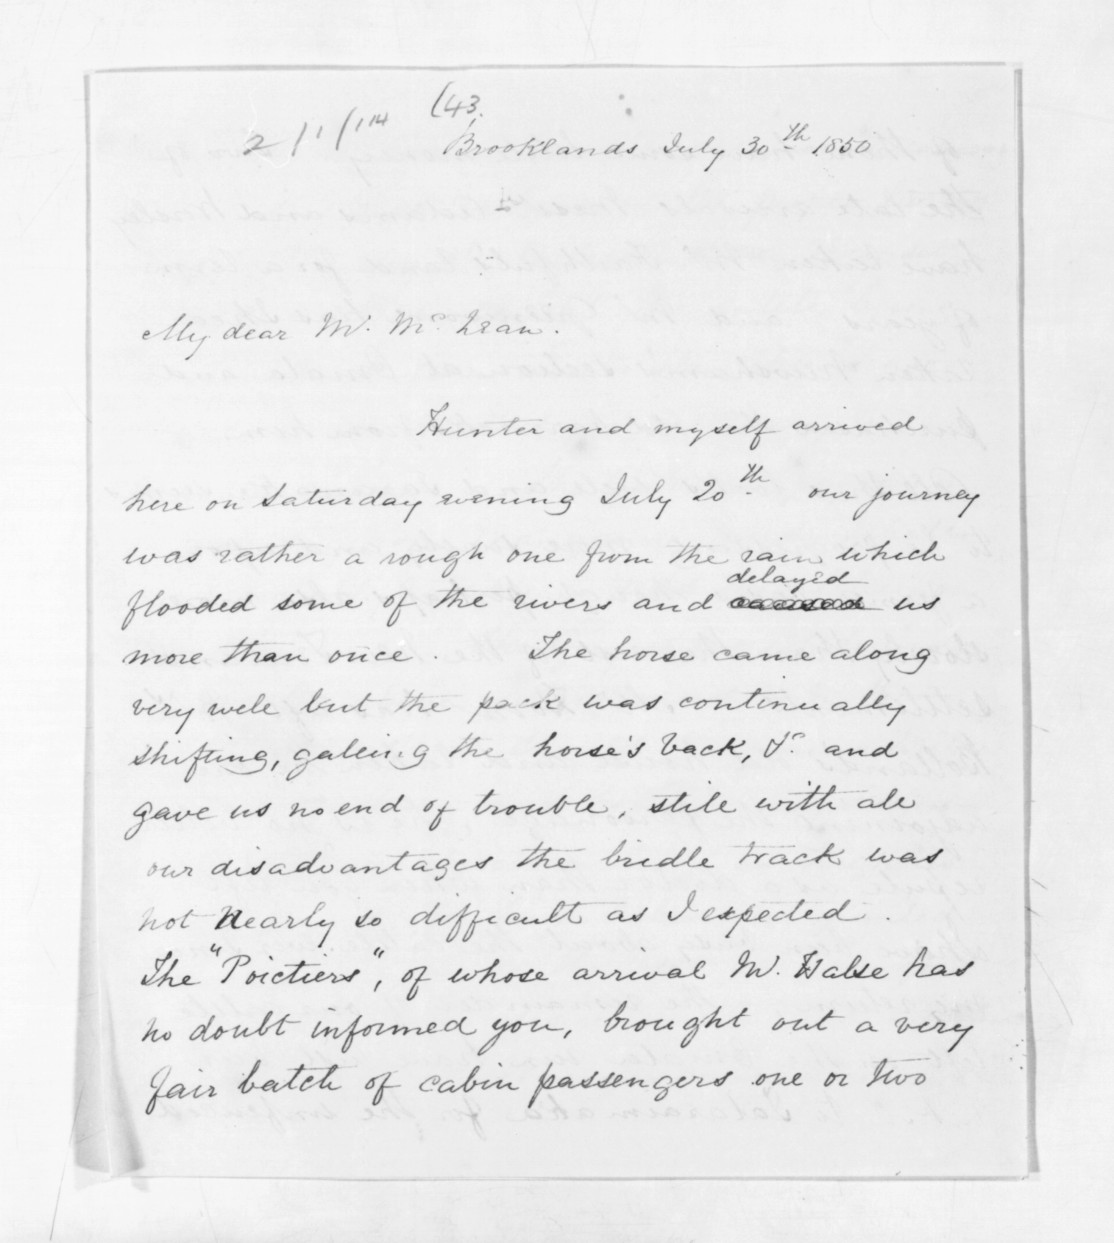 (43.
Brooklands July 30th 1850
My dear Mr. McLean.
Hunter and myself arrived
here on Saturday evening July 20th our journey
was rather a rough one from the rain which
delayed
flooded some of the rivers and caused us
more than once. The horse came along
very well but the pack was continually
shifting, galling the horse's back, &c and
gave us no end of trouble, still with all
our disadvantages the bridle track was
not nearly so difficult as I expected.
The "Poictiers", of whose arrival Mr. Halse has
no doubt informed you, brought out a very
fair batch of cabin passengers one or two